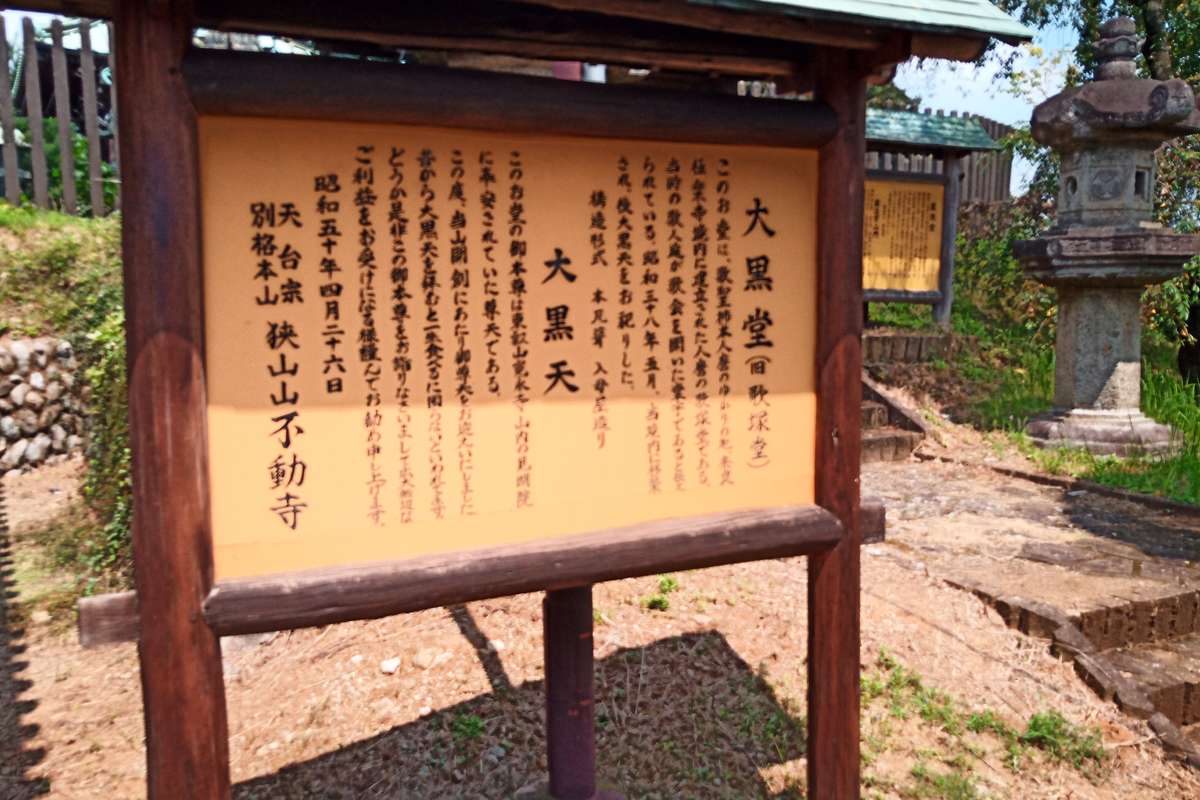 大黒堂(旧歌塚堂)
このお堂は、歌聖柿本人麿のゆかりの地、奈良
在柿本寺境内に建立された人麿の歌塚堂である。
当時の歌人達が歌会を開いた堂宇であると伝え
られている。昭和三十八年五月、当境内に移築
され、後大黒天をお祀りした。
構造形式 本瓦葺 入母屋造り
大黒天
このお堂の御本尊は東叡山寛永寺山内の見明院
に奉安されていた尊天である。
この度、当山開創にあたり御尊天をお迎えいたしました
昔から大黒天を拝むと一生食べるに困らないといわれます
どうか是非この御本尊をお詣りなさいまして広大無辺な
ご利益をお受けになる様謹んでお勧め申し上げます。
昭和五十年四月二十六日
天台宗
別格本山 狭山山不動寺